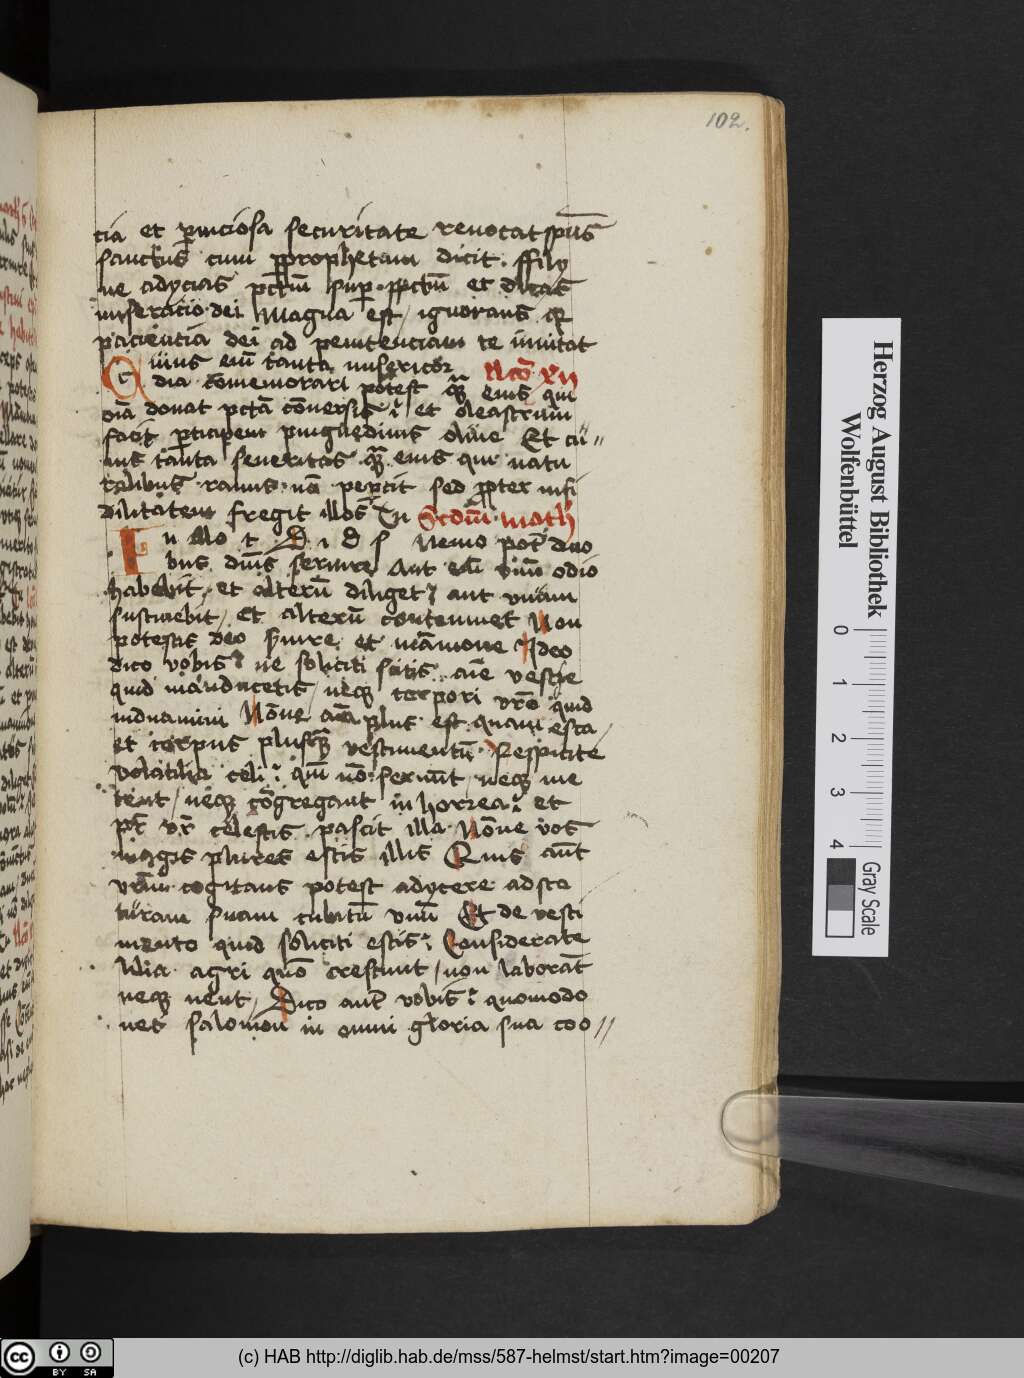 102.
cia et pniciosa securitate reuocat spūs
sanctus cum pprophetam dicit. ffily
ne adycias pctm sup pctūm et dicas
miseracio dei magna est / ignorans qr
paciencia dei ad penitenciam te inuitat
uius em tanta misericor Lco xij
dia comemorari potest qr eius qui
oīa donat pctā conersis et oleastrum
facit pticipem pinguedinis oliue Et cu
ius tanta seueritas qr eius qui natu
ralibus ramis nō pepcit sed ppter infi
dilitatem fregit illos Tu Scdm math
n illo t D i d s Nemo pot duo
bus dnis seruire Aut em vnū odio
habebit, et alterū diliget aut vnum
sustinebit, et alterū contemnet Non
potestis deo suire et māmone Ideo
dico vobis ne soliciti sitis aīe vestre
quid manducetis neqz corpori vrō quid
induamini Nōne aīa plus est quam esca
et corpus plusqz vestimentū Respicite
volatilia celi qm nō serunt neqz me
tent / neqz cōgregant in horrea et
pr vr celestis pascit illa Nōne vos
magis plures estis illis Quis aūt
vrm cogitans potest adycere ad sta
turam suam cubitū vnū Et de vesti
mento quid soliciti estis Considerate
lilia agri quō crescunt / non laborāt
neqz nent, Dico aut vobis quomodo
nec salomon in omni gloria sua coo //
Herzog August Bibliothek
Wolfenbüttel
0 1 2 3 4
Gray Scale
cc BY SA
(c) HAB http://diglib.hab.de/mss/587-helmst/start.htm?image=00207